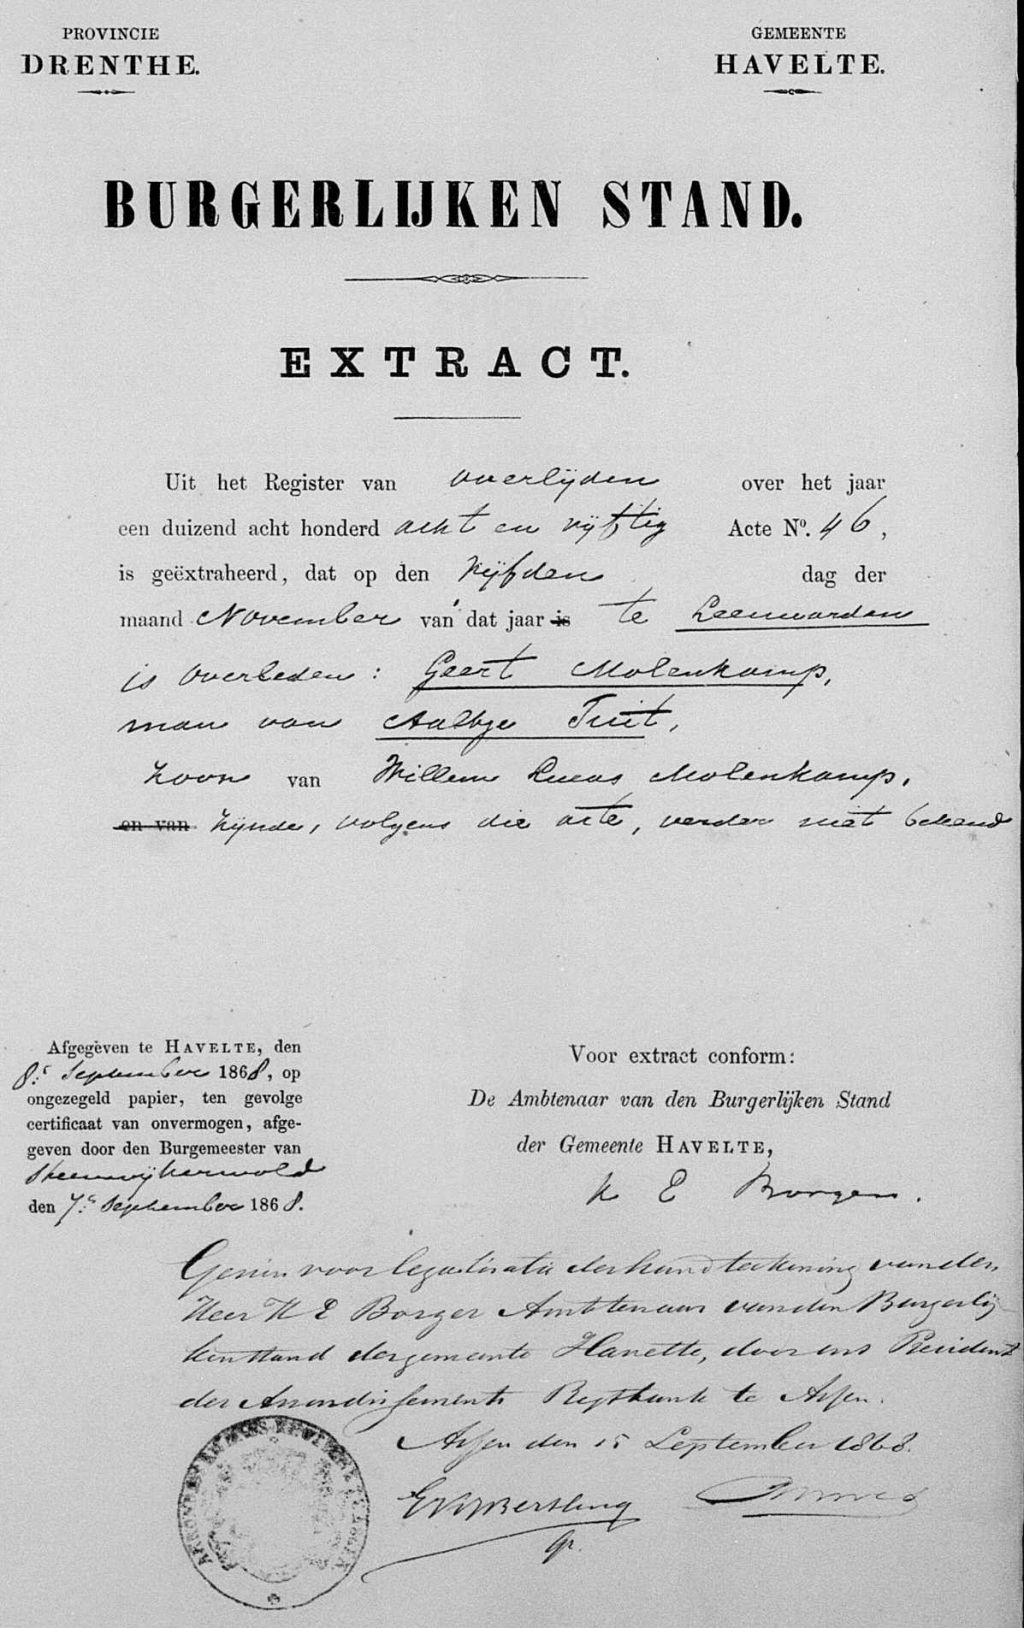 PROVINCIE
DRENTHE.
GEMEENTE
HAVELTE.
BURGERLIJKEN STAND.
EXTRACT.
Uit het Register van overlijden over het jaar
een duizend acht honderd acht en vijftig Acte No. 46,
is geëxtraheerd, dat op den vijfden dag der
maand November van dat jaar is te Leeuwarden
is overleden: Geert Molenkamp,
man van Aaltje Tuit,
zoon van Willem Lucas Molenkamp,
en van zijnde, volgens die acte, verder niet bekend
Afgegeven te HAVELTE, den
8e September 1868, op
ongezegeld papier, ten gevolge
certificaat van onvermogen, afge-
geven door den Burgemeester van
Steenwijkerwold
den 7e September 1868.
Voor extract conform:
De Ambtenaar van den Burgerlijken Stand
der Gemeente HAVELTE,
K E Borger.
Gezien voor legalisatie der handteekening van den
Heer K E Borger Ambtenaar van den Burgerlij
kenstand der gemeente Havelte, door ons President
der Arrondissements Regtbank te Assen.
Assen den 15 September 1868.